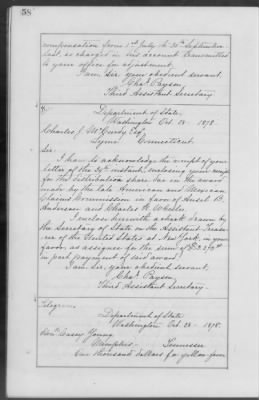 58
compensation from 1st July to 30th September
last, as charges in this account transmitted
to your office for adjustment.
I am, Sir, your obedient servant,
Chas. Payson,
Third Assistant Secretary.
Department of State,
Washington Oct. 28 - 1878.
Charles J. McCurdy Esq.
Lyme, Connecticut.
Sir:
I have to acknowledge the receipt of your
letter of the instant, enclosing your receipt
for the distribution share due in the award
made by the late American and Mexican
Claims Commission in favor of Ansel B.
Anderson and Charles H.
I enclose herewith a draft drawn by
the Secretary of State on the Assistant Treasu-
rer of the United States at New York, in your
favor as assignee for the sum of
in part payment of said award.
I am, Sir, your obedient servant,
Chas. Payson,
Third Assistant Secretary.
Telegram.
Department of State
Washington Oct. 28 - 1878.
Hon. Casey Young
Memphis - Tennessee
One thousand dollars for yellow-fever